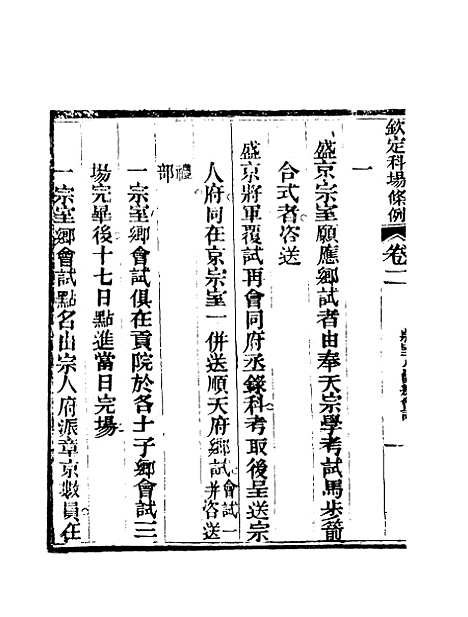 欽定科場條例 卷二
一
盛京宗室願應鄉試者由奉天宗學考試馬步箭
合式者咨送
盛京將軍覆試再會同府丞錄科考取後呈送宗
人府同在京宗室一併送順天府鄉試會試一併咨送
禮部
一宗室鄉會試俱在貢院於各士子鄉會試三
場完畢後十七日點進當日完場
一宗室鄉會試點名由宗人府派章京數員在